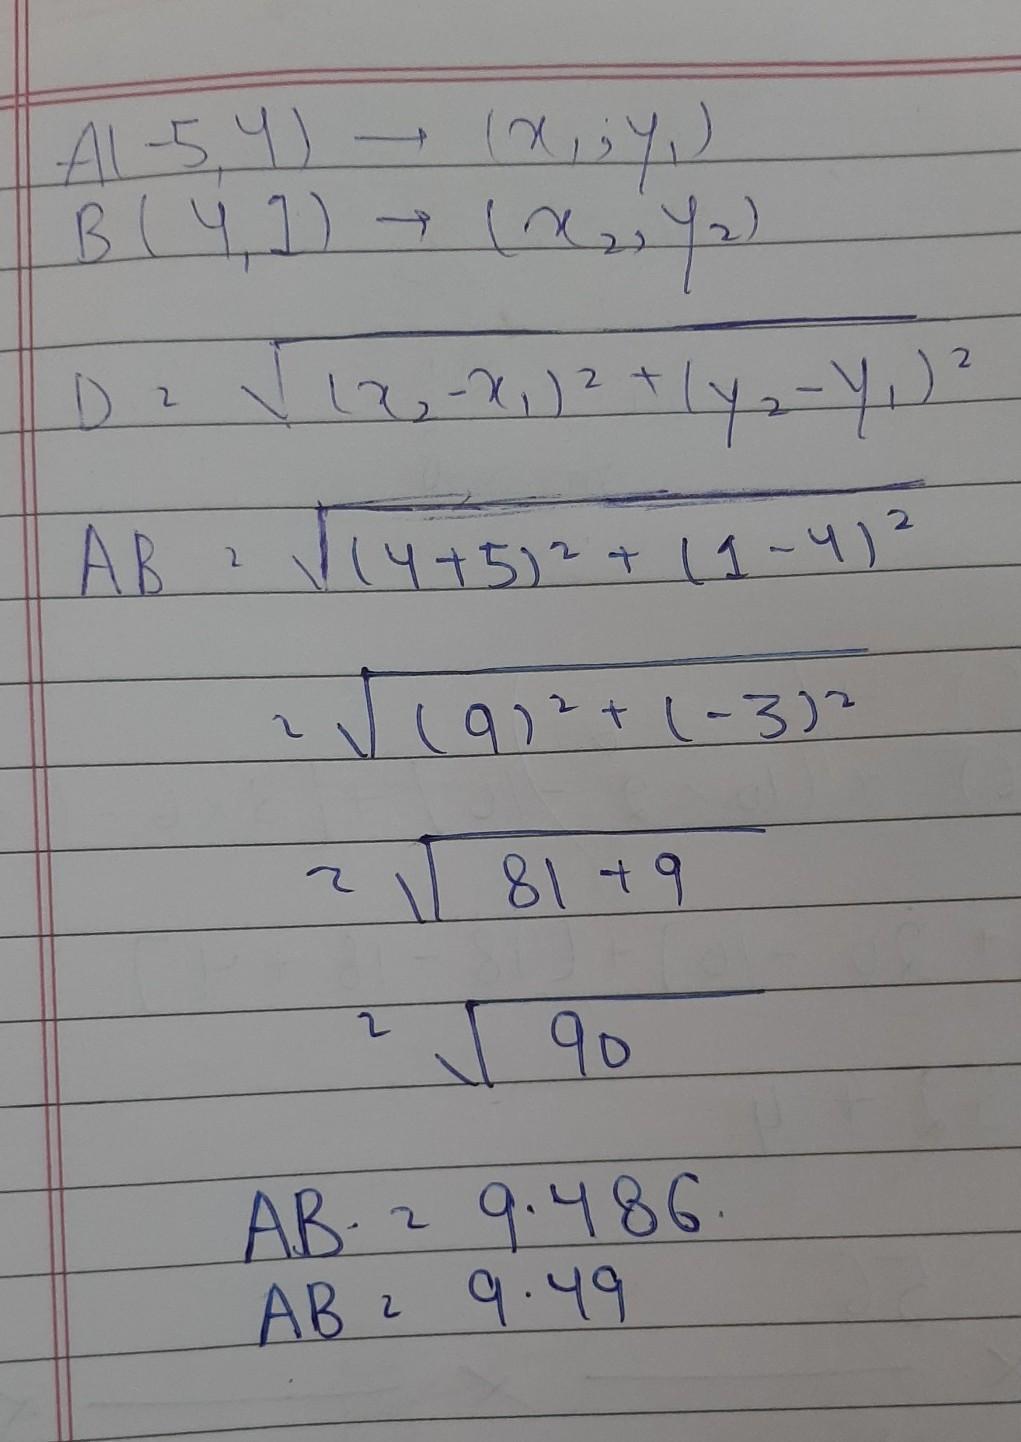 A(-5,4) → (x₁; y₁)
B(4,1) → (x₂, y₂)
D = √(x₂-x₁)² + (y₂-y₁)²
AB = √(4+5)² + (1-4)²
= √(9)² + (-3)²
= √81+9
= √90
AB. = 9.486.
AB = 9.49